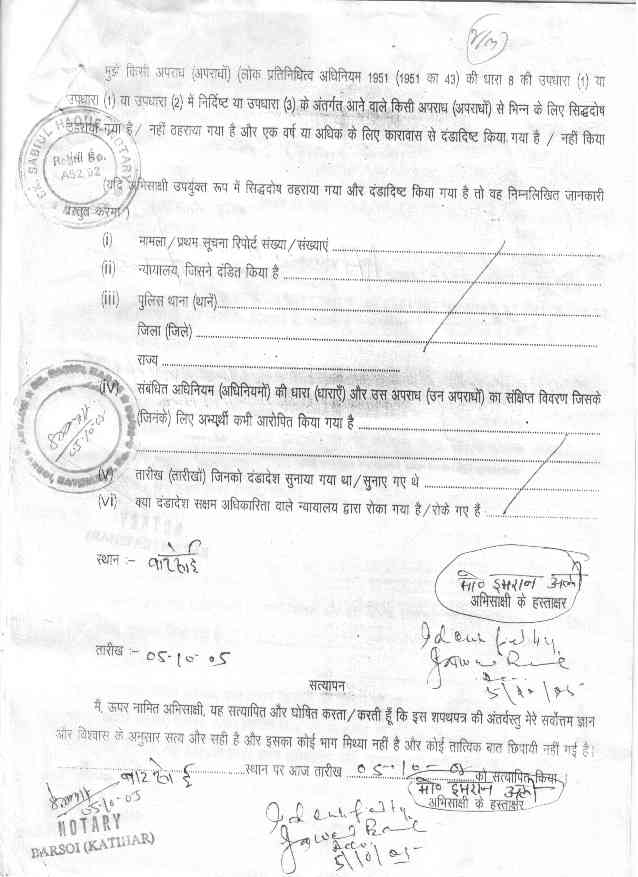 मुझे किसी अपराध (अपराधों) (लोक प्रतिनिधित्व अधिनियम 1951 (1951 का 43) की धारा 8 की उपधारा (1) या
उपधारा (1) या उपधारा (2) में निर्दिष्ट या उपधारा (3) के अंतर्गत आने वाले किसी अपराध (अपराधों) से भिन्न के लिए सिद्धदोष
ठहराया गया है / नहीं ठहराया गया है और एक वर्ष या अधिक के लिए कारावास से दंडादिष्ट किया गया है / नहीं किया
SABIUL HAQUE NOTARY
(यदि अभिसाक्षी उपर्युक्त रूप में सिद्धदोष ठहराया गया और दंडादिष्ट किया गया है तो वह निम्नलिखित जानकारी
प्रस्तुत करेगा)
(i) मामला / प्रथम सूचना रिपोर्ट संख्या / संख्याएं
(ii) न्यायालय, जिसने दंडित किया है
(iii) पुलिस थाना (थानें)
जिला (जिले)
राज्य
(iv) संबंधित अधिनियम (अधिनियमों) की धारा (धाराएँ) और उस अपराध (उन अपराधों) का संक्षिप्त विवरण जिसके
(जिनके) लिए अभ्यर्थी कभी आरोपित किया गया है
05-10-05
(v) तारीख (तारीखों) जिनको दंडादेश सुनाया गया था / सुनाए गए थे
(vi) क्या दंडादेश सक्षम अधिकारिता वाले न्यायालय द्वारा रोका गया है / रोके गए हैं
स्थान :- बारसोई
मो० इमरान अली
अभिसाक्षी के हस्ताक्षर
तारीख :- 05-10-05
5/10/05
सत्यापन
मैं, ऊपर नामित अभिसाक्षी, यह सत्यापित और घोषित करता / करती हूँ कि इस शपथपत्र की अंतर्वस्तु मेरे सर्वोत्तम ज्ञान
और विश्वास के अनुसार सत्य और सही है और इसका कोई भाग मिथ्या नहीं है और कोई तात्विक बात छिपायी नहीं गई है।
बारसोई स्थान पर आज तारीख 05-10-05 को सत्यापित किया।
मो० इमरान अली
अभिसाक्षी के हस्ताक्षर
05-10-05
NOTARY
BARSOI (KATIHAR)
5/10/05